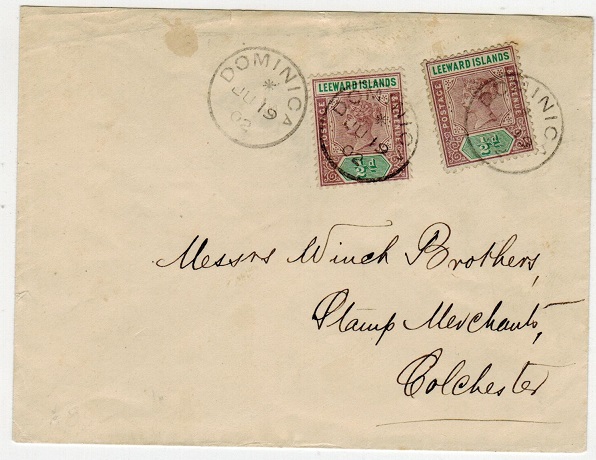 DOMINICA
JU 19
02
LEEWARD ISLANDS
POSTAGE
REVENUE
½d
DOMINICA
JU 19
02
LEEWARD ISLANDS
POSTAGE
REVENUE
½d
DOMINIC
Messrs Winch Brothers,
Stamp Merchants,
Colchester